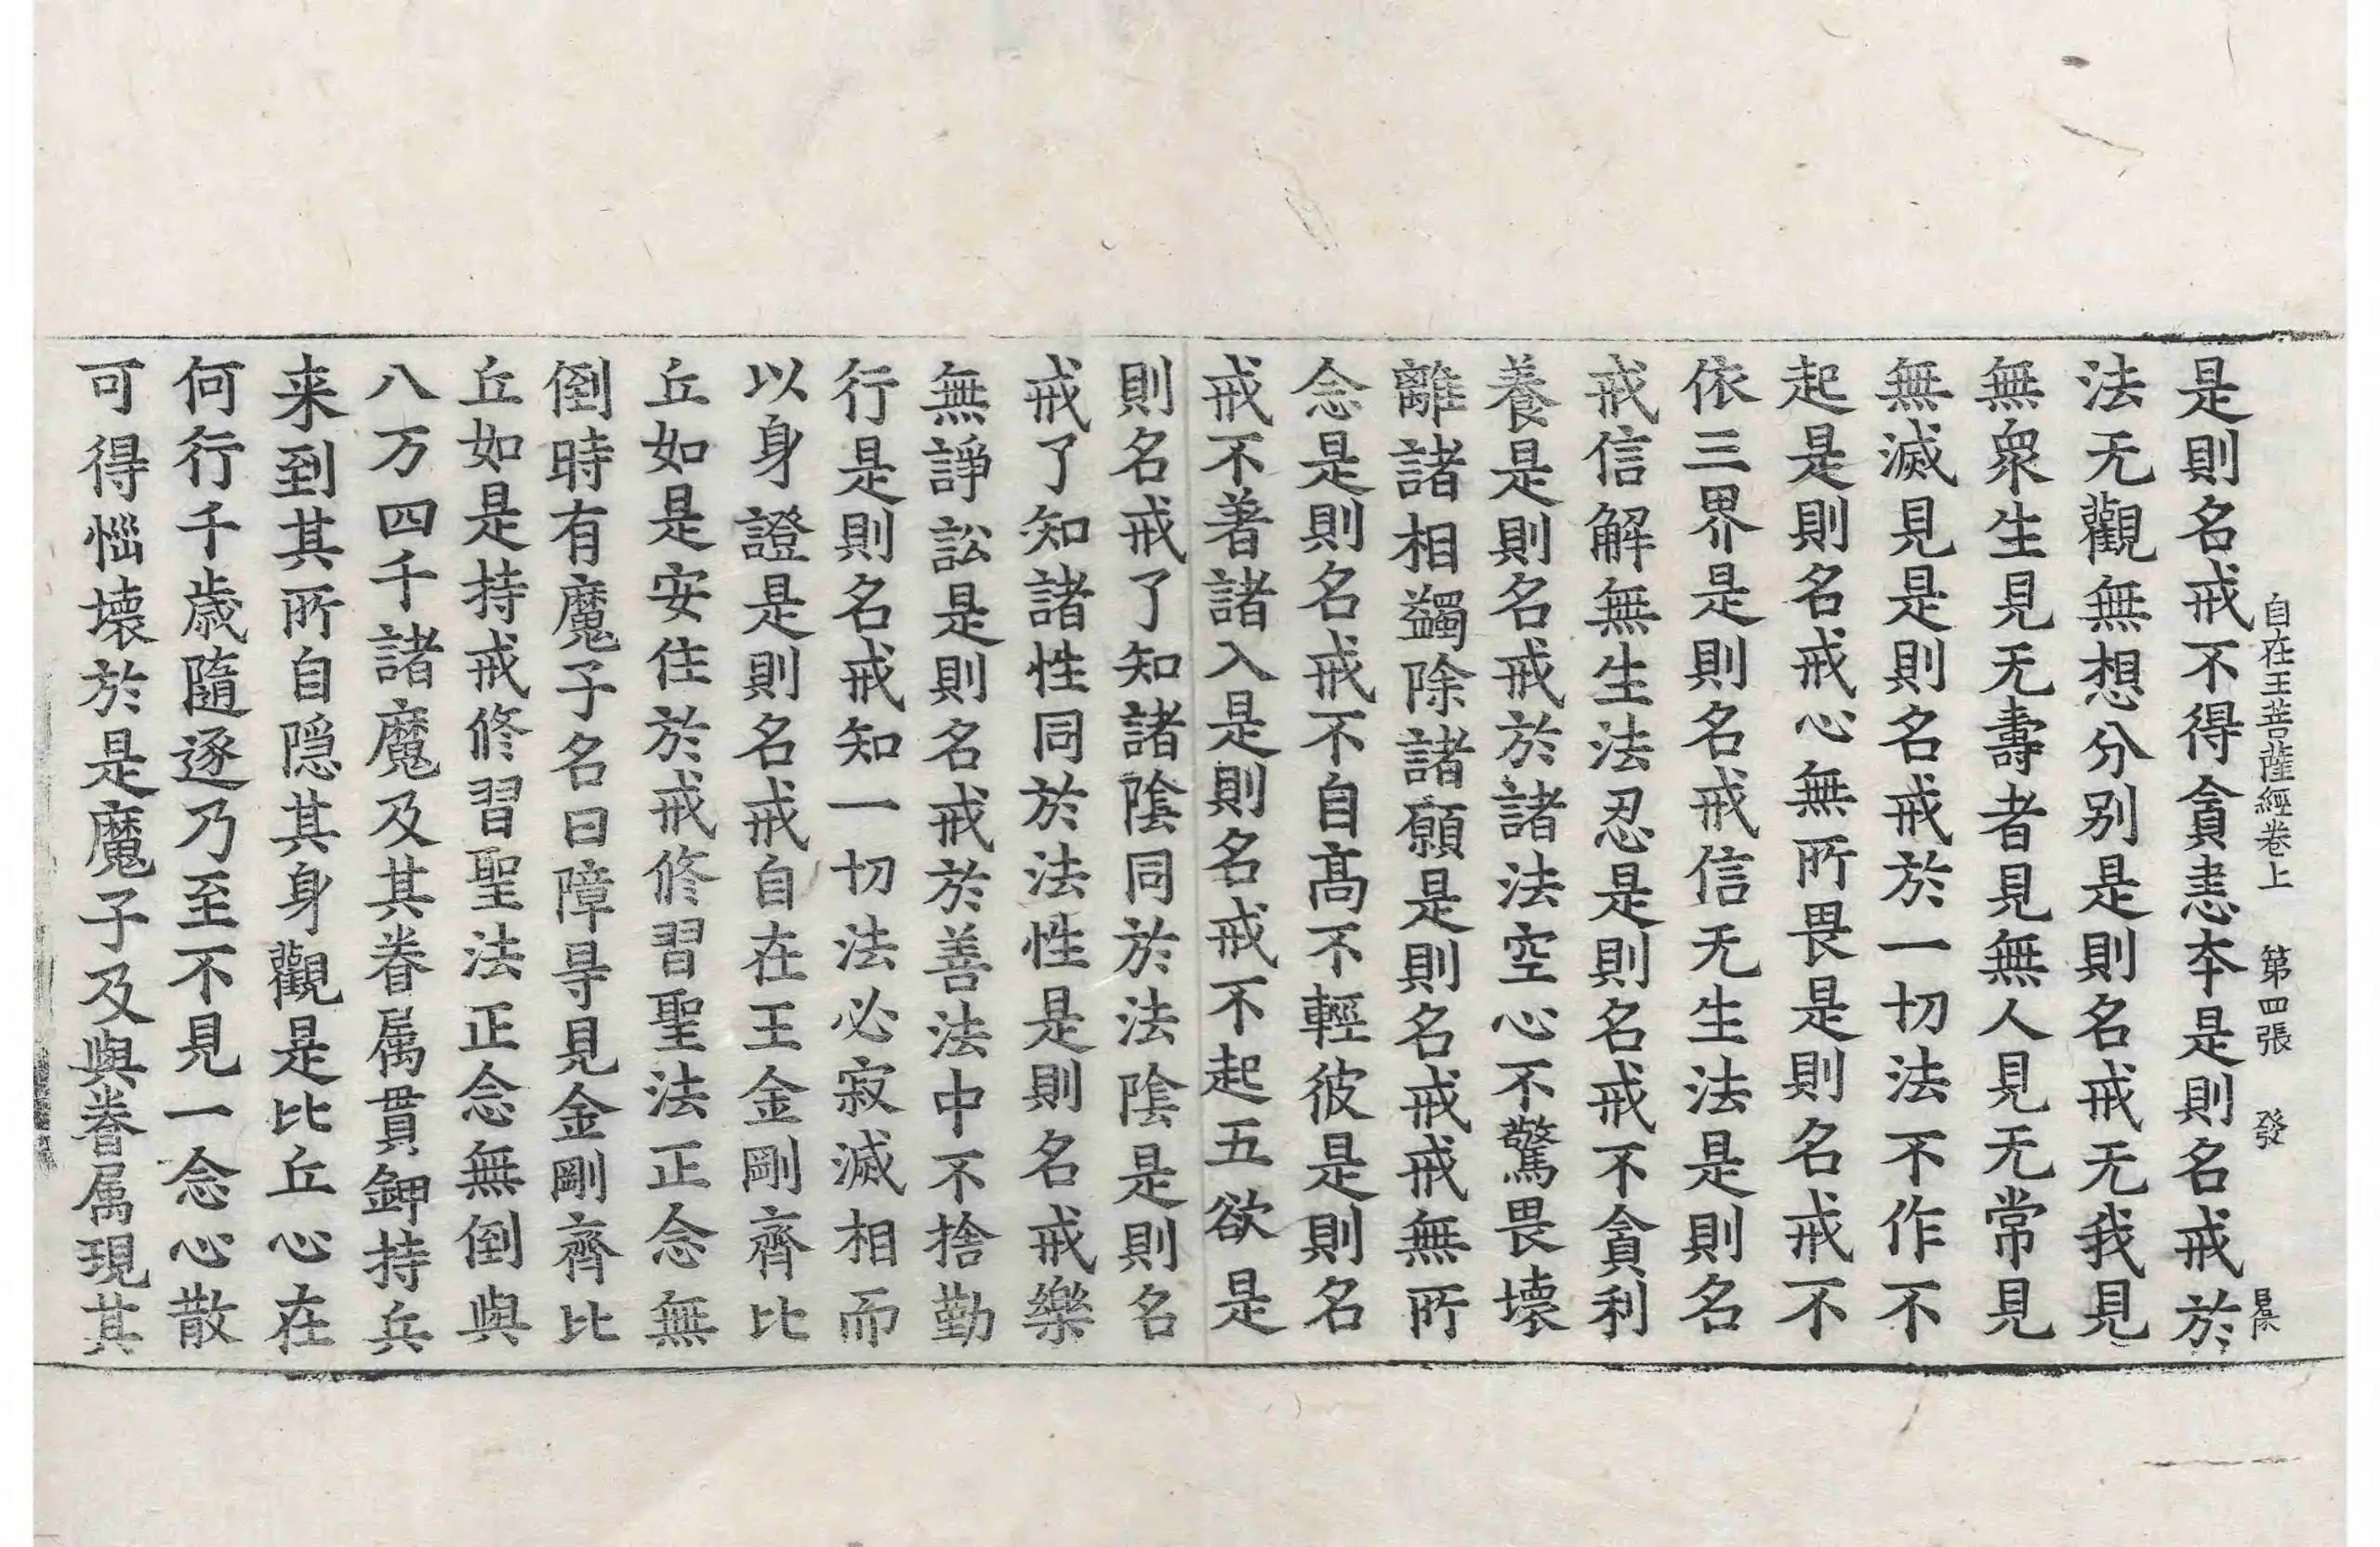 自在王菩薩經卷上 第四張 發
是則名戒不得貪恚夲是則名戒於
法无觀無想分别是則名戒无我見
無衆生見无壽者見無人見无常見
無滅見是則名戒於一切法不作不
起是則名戒心無所畏是則名戒不
依三界是則名戒信无生法是則名
戒信解無生法忍是則名戒不貪利
養是則名戒於諸法空心不驚畏壞
離諸相蠲除諸願是則名戒戒無所
念是則名戒不自高不輕彼是則名
戒不著諸入是則名戒不起五欲是
則名戒了知諸陰同於法陰是則名
戒了知諸性同於法性是則名戒樂
無諍訟是則名戒於善法中不捨勤
行是則名戒知一切法必寂滅相而
以身證是則名戒自在王金剛齊比
丘如是安住於戒修習聖法正念無
倒時有魔子名曰障㝵見金剛齊比
丘如是持戒修習聖法正念無倒與
八万四千諸魔及其眷属貫鉀持兵
来到其所自隱其身觀是比丘心在
何行千歳隨逐乃至不見一念心散
可得惱壞於是魔子及與眷属現其